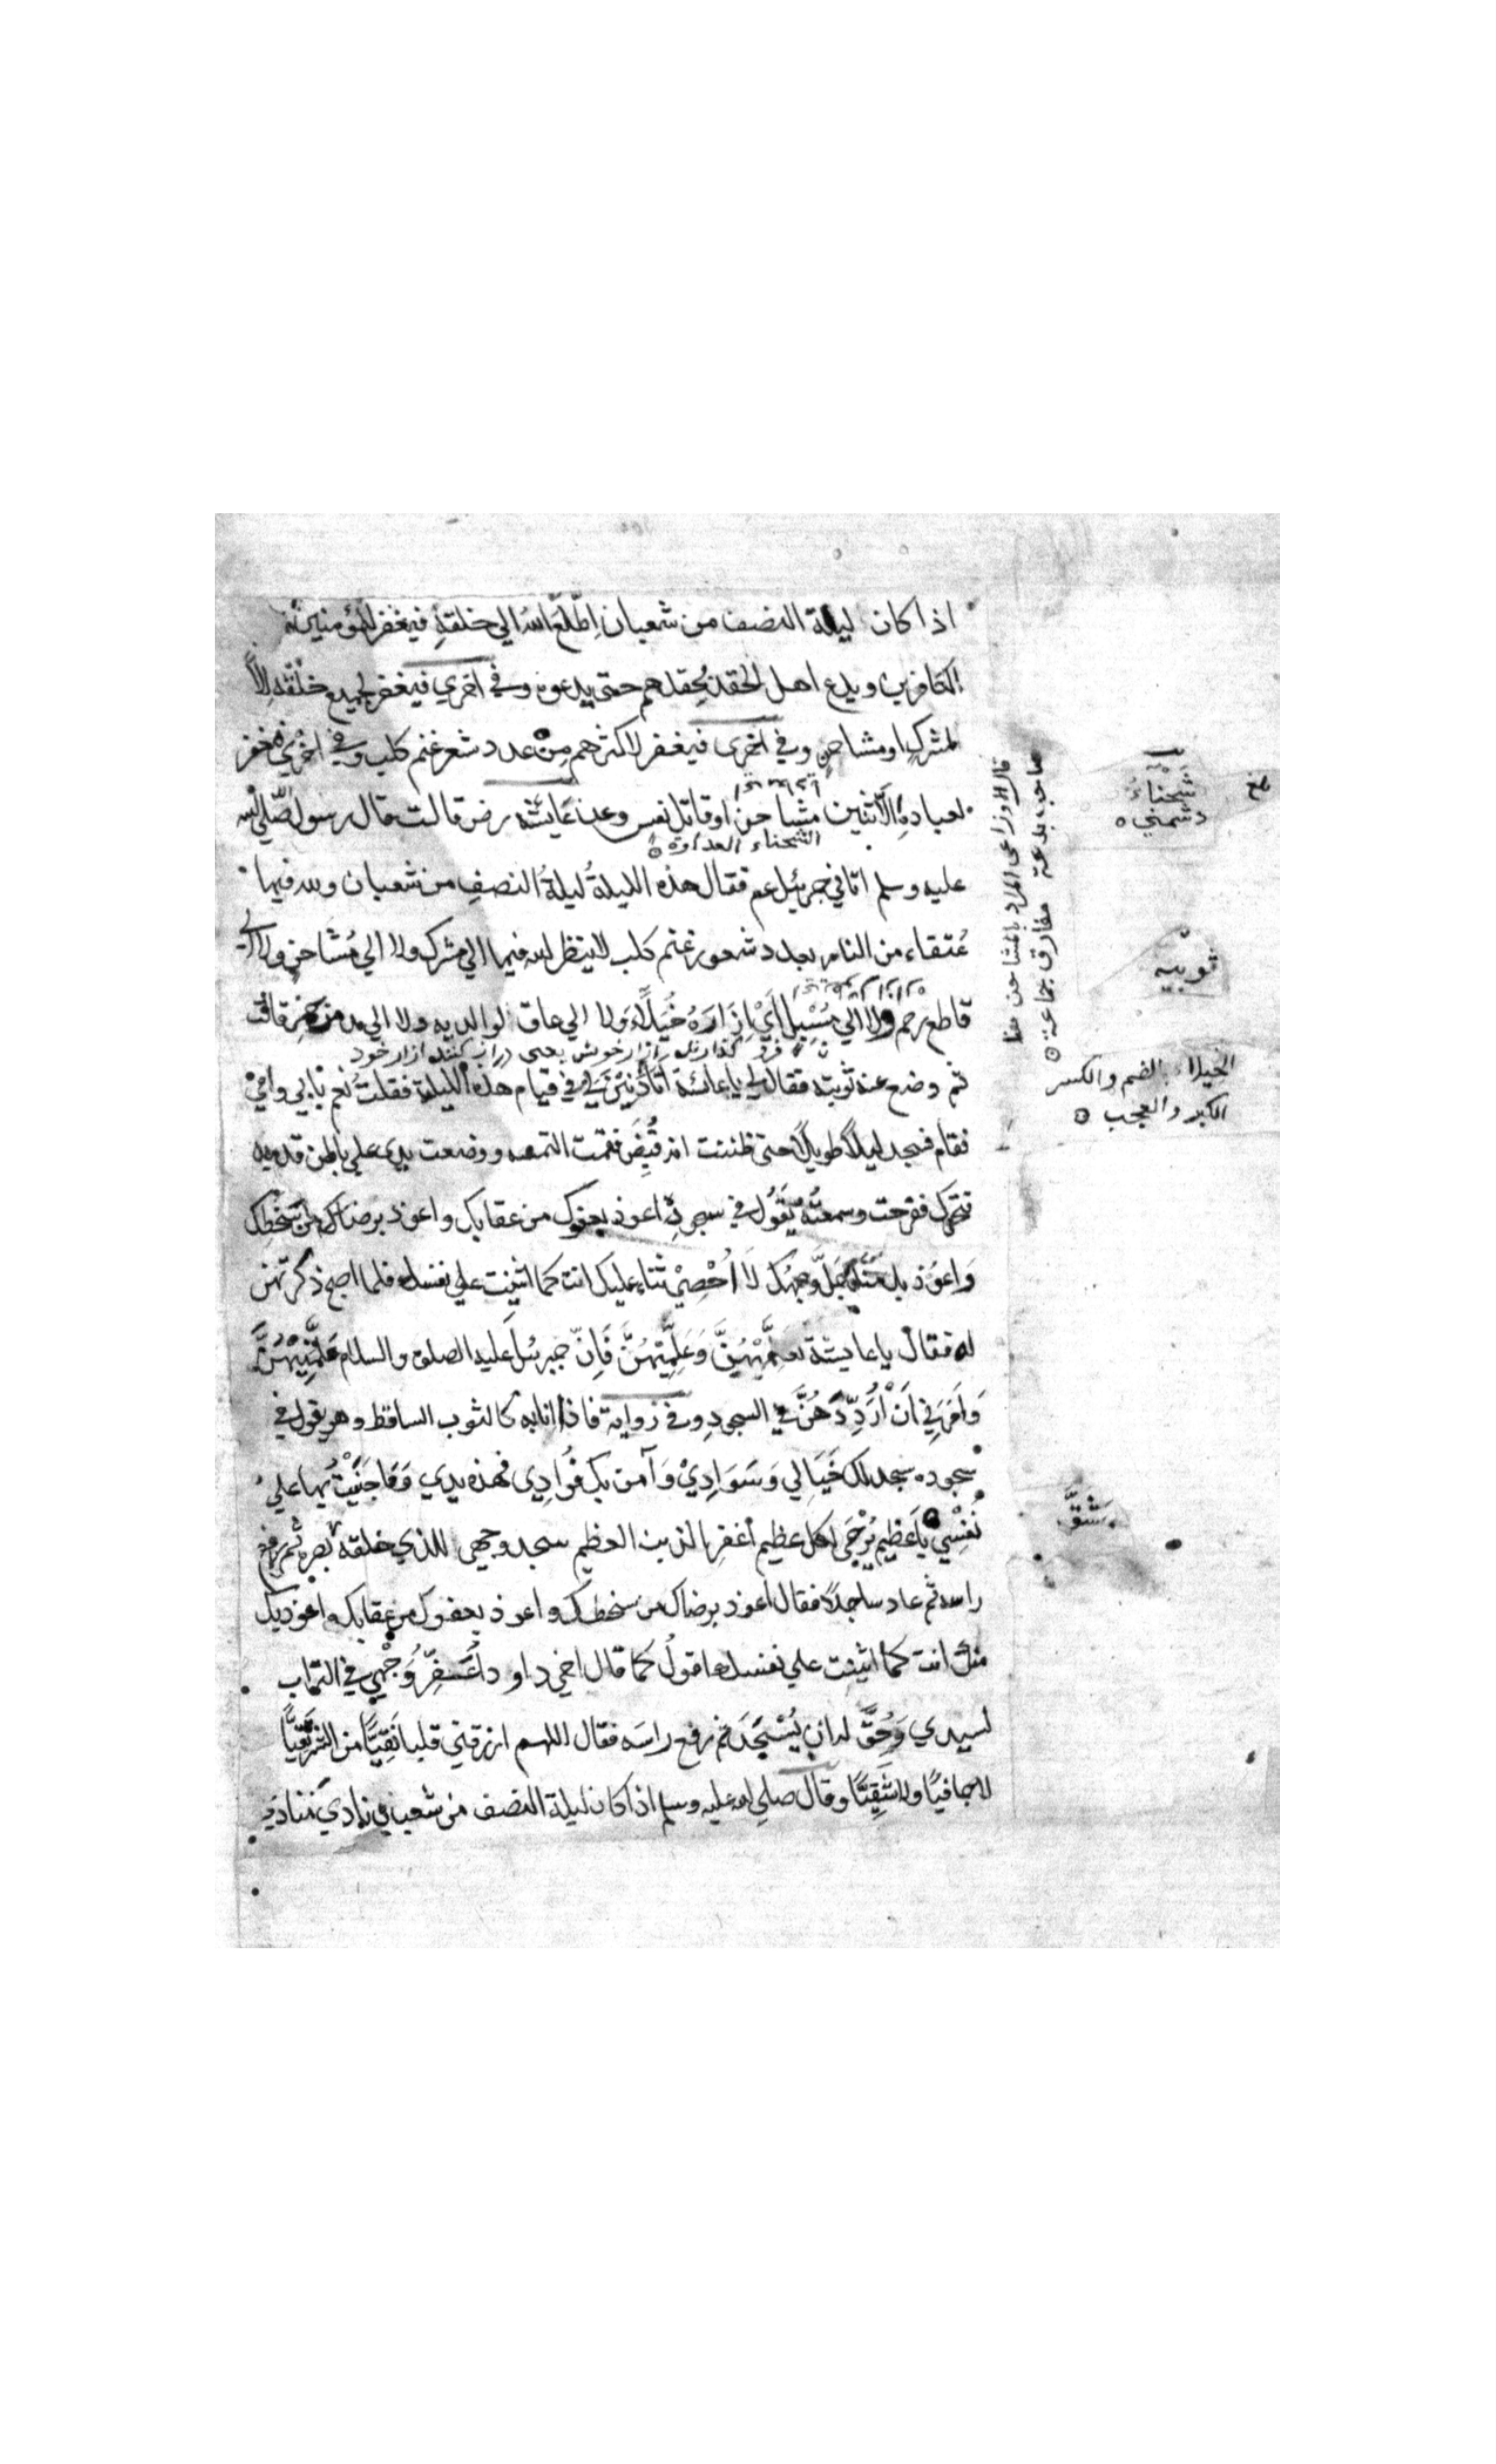 اذا كان ليلة النصف من شعبان اِطّلَعَ اللهُ الي خلقهِ فيغفر للمؤمنين
الكافرين ويدع اهل الحقد بحقدهم حتى يدعوه وفي اخري فيغفر لجميع خلقه اِلّا
لمشركٍ او مشاحنٍ وفي اخرى فيغفر لاكثرهم مِن عدد شعر غنم كلب وفي اخري فيغفر
لعباده اِلّا اثنين مشاحن او قاتل نفس وعن عَايشة رض قالت قال رسول الله صلي الله
الشحناء العداوة
عليه وسلم اتاني جبرئيل عم فقال هذه الليلةُ ليلةُ النصفِ من شعبان ولله فيها
عُتقاء من النار بعدد شعور غنم كلب لاينظر الله فيها الي مشرك ولا الي مُشَاحنٍ ولا الي
قاطع رحم ولا الي مُسْبِلٍ اَيْ اِزَارَهُ خُيَلاءً ولا الي عاق لوالديه ولا الي مدمن خمر قالت
فرو گذارنده ازار خویش یعنی دراز کننده ازار خود
ثم وضع عنه ثوبيه فقال لي يا عائشة اَتَأذَنِيْنَ لِي في قيام هذه الليلة فقلت نعم بابي وامي
فقام فسجد ليلاً طويلاً حتى ظننت انه قُبِضَ فقمت التمسه ووضعت يدى علي باطن قدميه
فتحرك ففرحت وسمعتُهُ يَقُول في سجودِهِ اعوذ بعفوك من عقابك واعوذ برضاك من سَخَطِك
وَاعوُذ بك منك جَلَّ وجهُك لَا اُحْصِيْ ثناء عليك انت كما اثنيت علي نفسك فلما اصبح ذكرتهن
له فقال يا عايشة تعلَّمِيْهُنَّ وَعَلِّمِيْهُنَّ فَاِنّ جبرئيلَ عليه الصلوة والسلام عَلَّمَنِيْهُنَّ
وَاَمَرَنِي اَنْ اُرَدِّدَهُنَّ في السجودِ وفي رواية فاذا انا به كالثوب الساقط وهو يقول في
سجوده سجد لك خَيَالي وَسَوَادِيْ وَآمن بك فُوَادِي فهذه يدي وَمَا جَنَيْتُ بِها عليَ
نَفْسِي يَاعَظِيم يُرْجَى لكل عظيم اغفر الذنب العظيم سجد وجهي للذي خلقه بصره ثم رفع
راسه ثم عاد ساجداً فقال اعوذ برضاك من سخطك واعوذ بعفوك من عقابك واعوذ بك
منك انت كما اثنيت علي نفسك اقولُ كما قال اخي داود اُعَفِّرُ وَجْهِي في التراب
لسيدي وَحُقَّ له ان يُسْجَدَ ثم رفع راسَه فقال اللهم ارزقني قلبا نَقِيًّا من الشر نقيًّا
لا جافيًا ولا شَقِيًّا وقال صلي الله عليه وسلم اذا كان ليلة النصف من شعبان نادي مُنادٍ
شَحْنَاءُ
دشمني
قال الاوزاعى المراد بالمشاحن هنا
صاحب بدعة مفارق جماعة
ثوبيه
الخيلاء بالضم والكسر
الكبر والعجب
شَقَّ